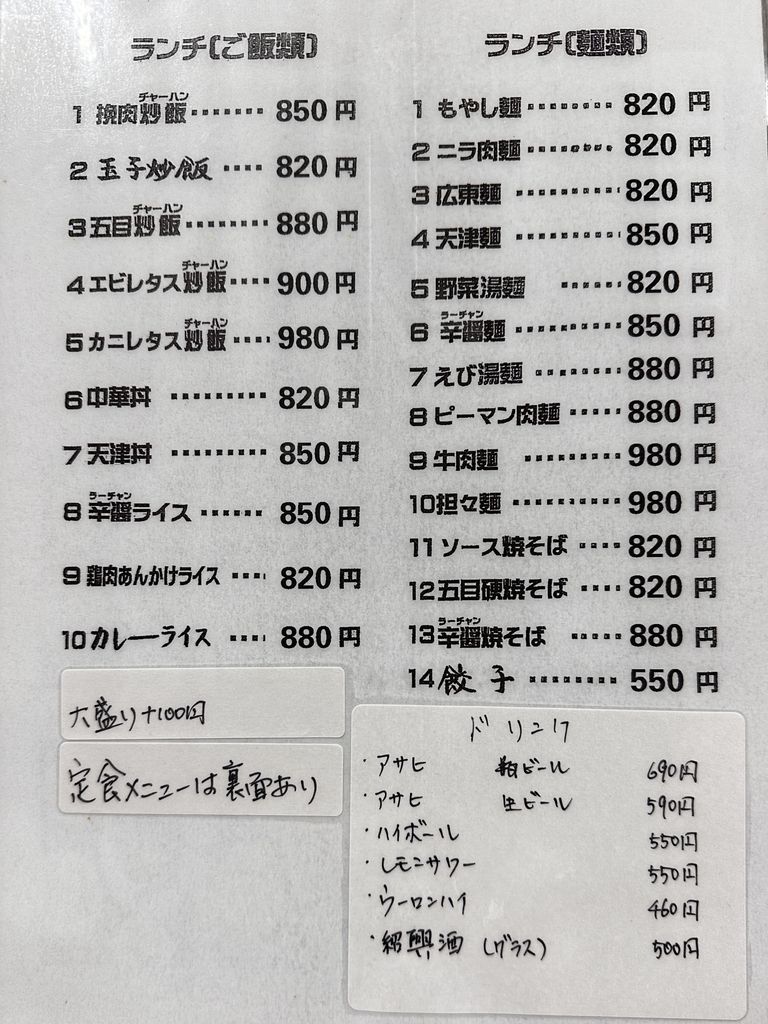 ランチ〔ご飯類〕
1 挽肉炒飯(チャーハン)‥‥‥‥ 850 円
2 玉子炒飯 ‥‥ 820 円
3 五目炒飯(チャーハン)‥‥‥‥ 880 円
4 エビレタス炒飯(チャーハン)‥‥ 900 円
5 カニレタス炒飯(チャーハン)‥‥ 980 円
6 中華丼 ‥‥‥‥‥ 820 円
7 天津丼 ‥‥‥‥‥ 850 円
8 辛醤(ラーチャン)ライス ‥‥‥ 850 円
9 鶏肉あんかけライス ‥‥ 820 円
10 カレーライス ‥‥ 880 円
大盛り+100円
定食メニューは裏面あり
ランチ〔麺類〕
1 もやし麺 ‥‥‥‥‥ 820 円
2 ニラ肉麺 ‥‥‥‥‥ 820 円
3 広東麺 ‥‥‥‥‥‥ 820 円
4 天津麺 ‥‥‥‥‥‥ 850 円
5 野菜湯麺 ‥‥‥ 820 円
6 辛醤(ラーチャン)麺 ‥‥‥‥‥ 850 円
7 えび湯麺 ‥‥‥‥‥ 880 円
8 ピーマン肉麺 ‥‥‥ 880 円
9 牛肉麺 ‥‥‥‥‥ 980 円
10 担々麺 ‥‥‥‥‥‥ 980 円
11 ソース焼そば ‥‥ 820 円
12 五目硬焼そば ‥‥ 820 円
13 辛醤(ラーチャン)焼そば ‥‥‥ 880 円
14 餃子 ‥‥‥‥‥ 550 円
ドリンク
・アサヒ 瓶ビール 690円
・アサヒ 生ビール 590円
・ハイボール 550円
・レモンサワー 550円
・ウーロンハイ 460円
・紹興酒 (グラス) 500円